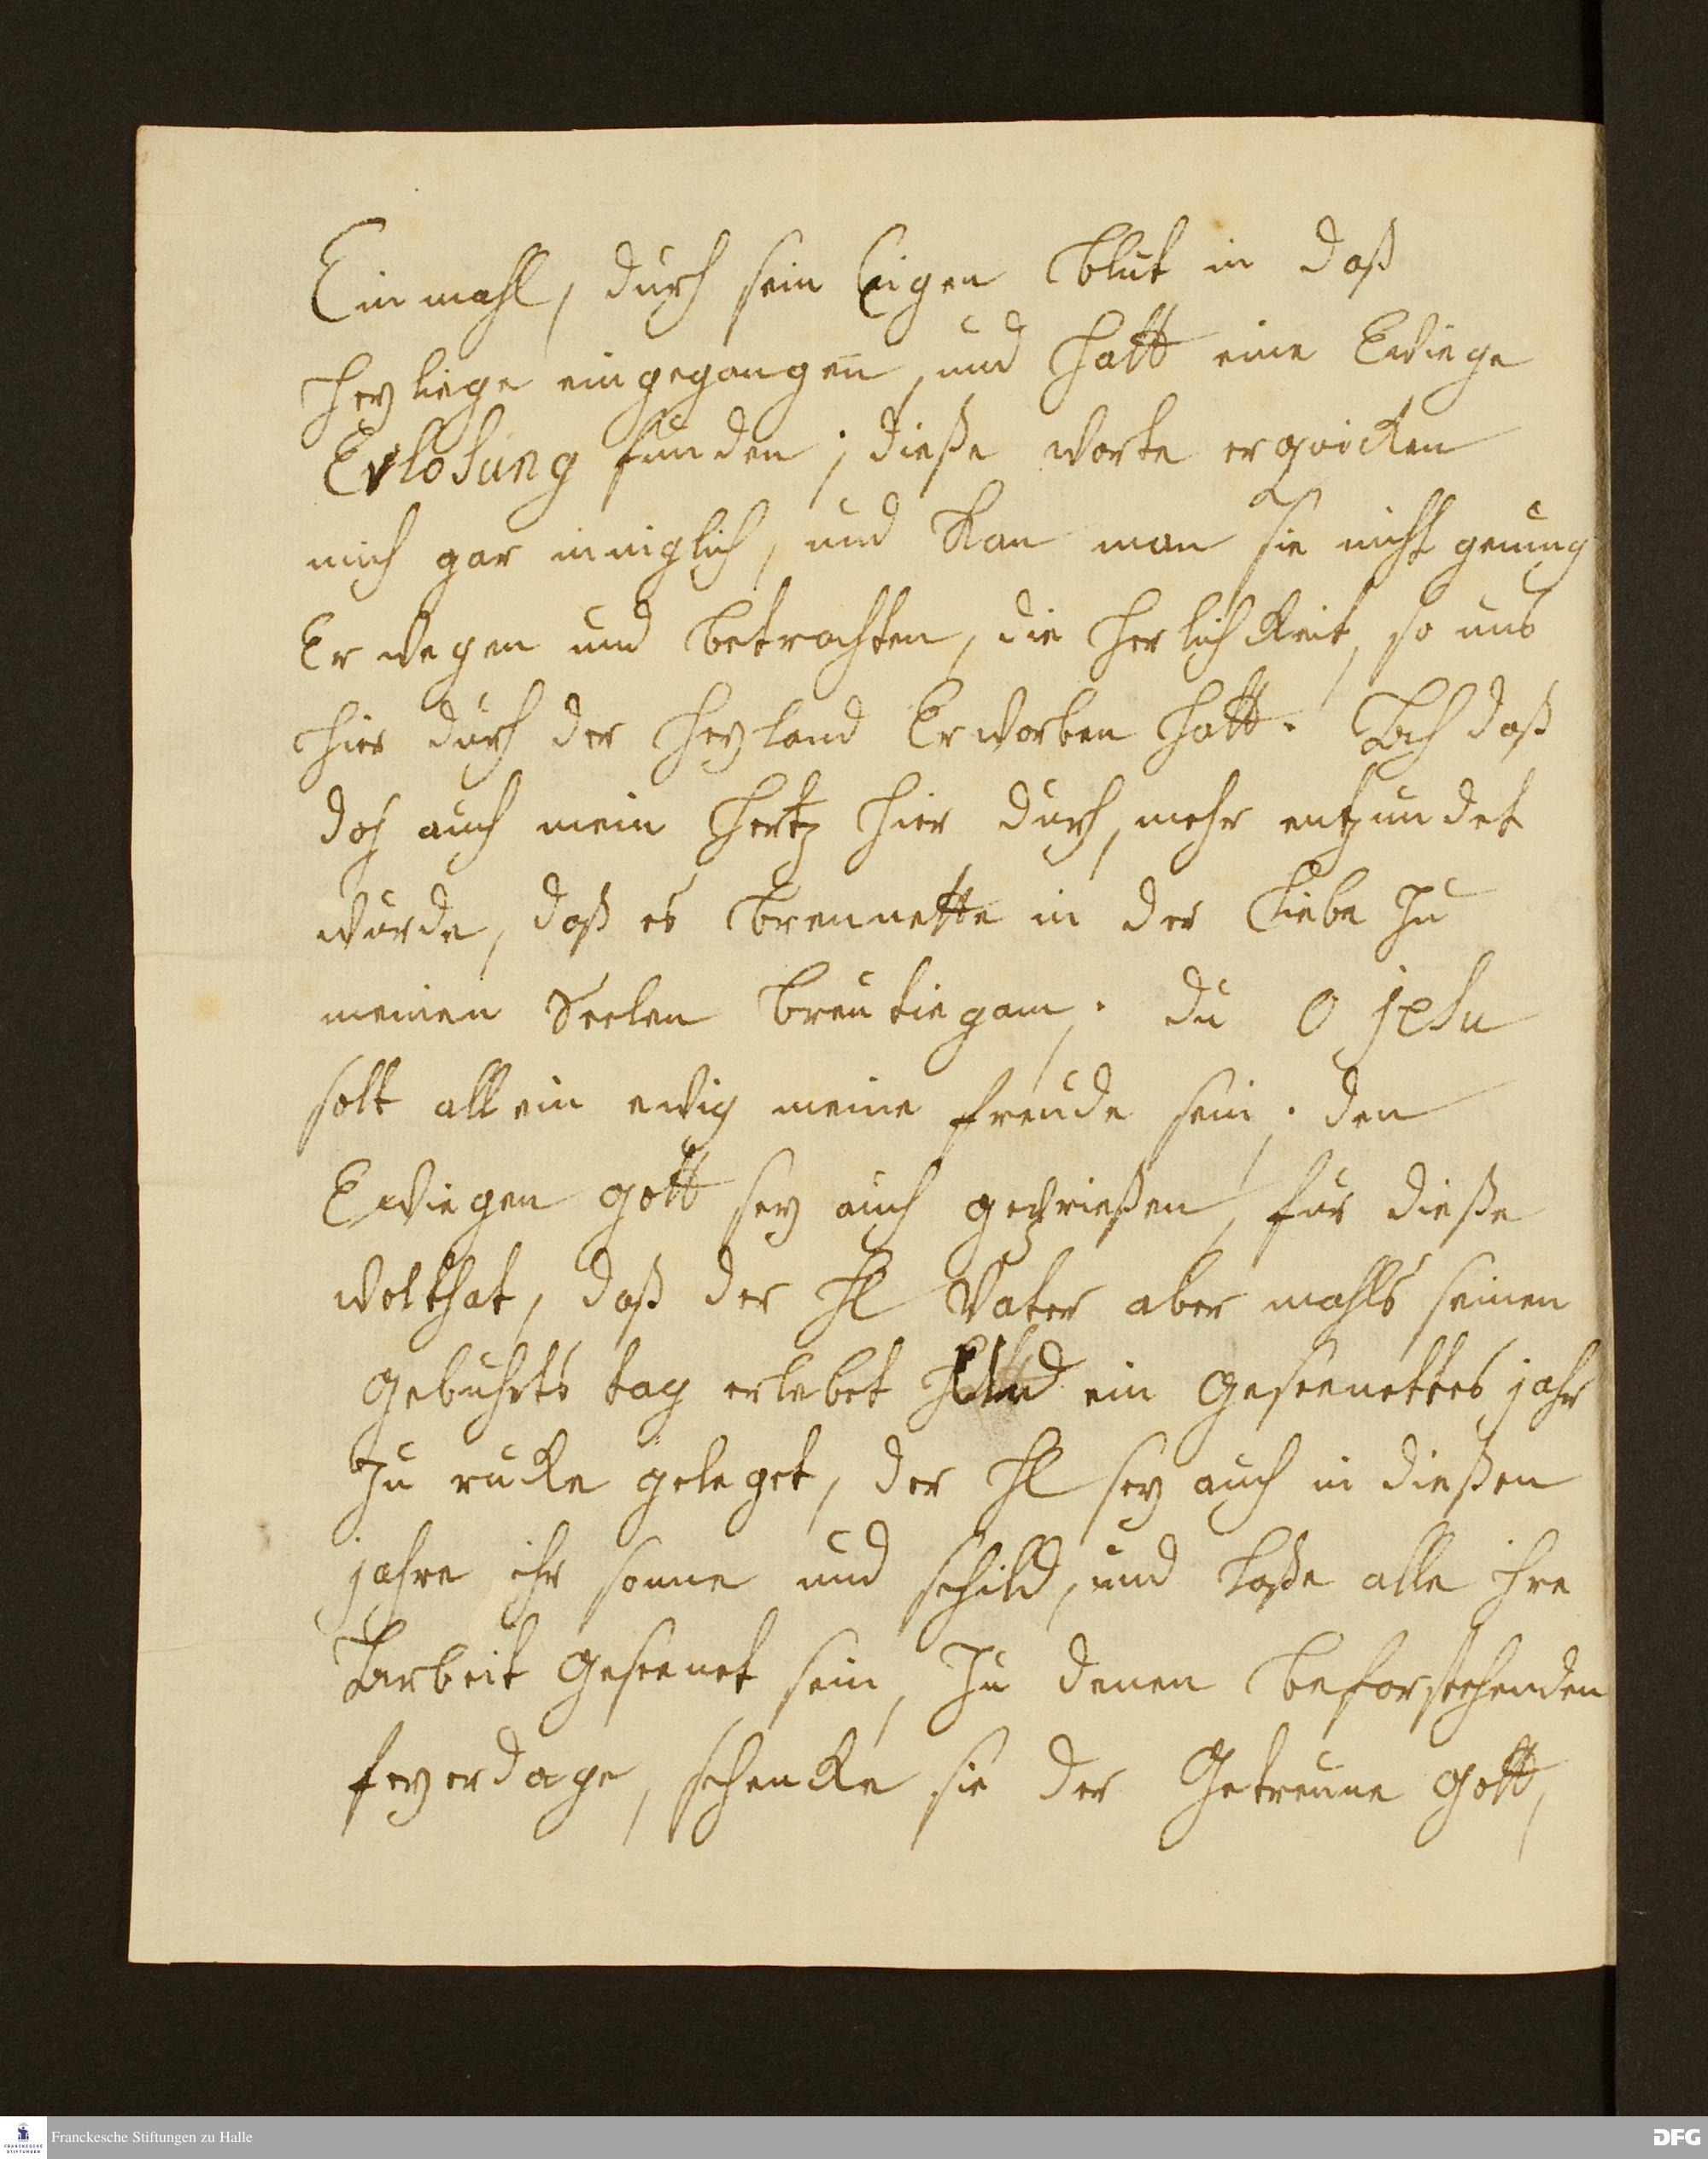 Einmahl, durch sein Eigen Blut in daß
heyliege eingegangen, und hatt eine Ewiege
Erlosung funden; dieße worte erqvicken
mich gar inniglich, und kan man sie nicht genung
Erwegen und betrachten, die herlichkeit, so uns
hier durch der heyland Erworben hatt. Ach daß
doch auch mein hertz hier durch, mehr entzundet
wurde, daß es brennette in der Liebe zu
meinen Seelen breutiegam; du O jesu
solt allein ewig meine freude sein; den
Ewiegen gott sey auch geprießen, fur dieße
wolthat, daß der H Vater aber mahls seinen
gebuhrts tag erlebet und ein geseenettes jahr
zu rucke geleget, der H sey auch in dießen
jahre ihr sonne und schild, und laße alle ihre
Arbeit geseenet sein, zu denen beforstehenden
feyerdage, schencke sie der Getreuue gott,
Franckesche Stiftungen zu Halle
FRANCKESCHE
STIFTUNGEN
DFG